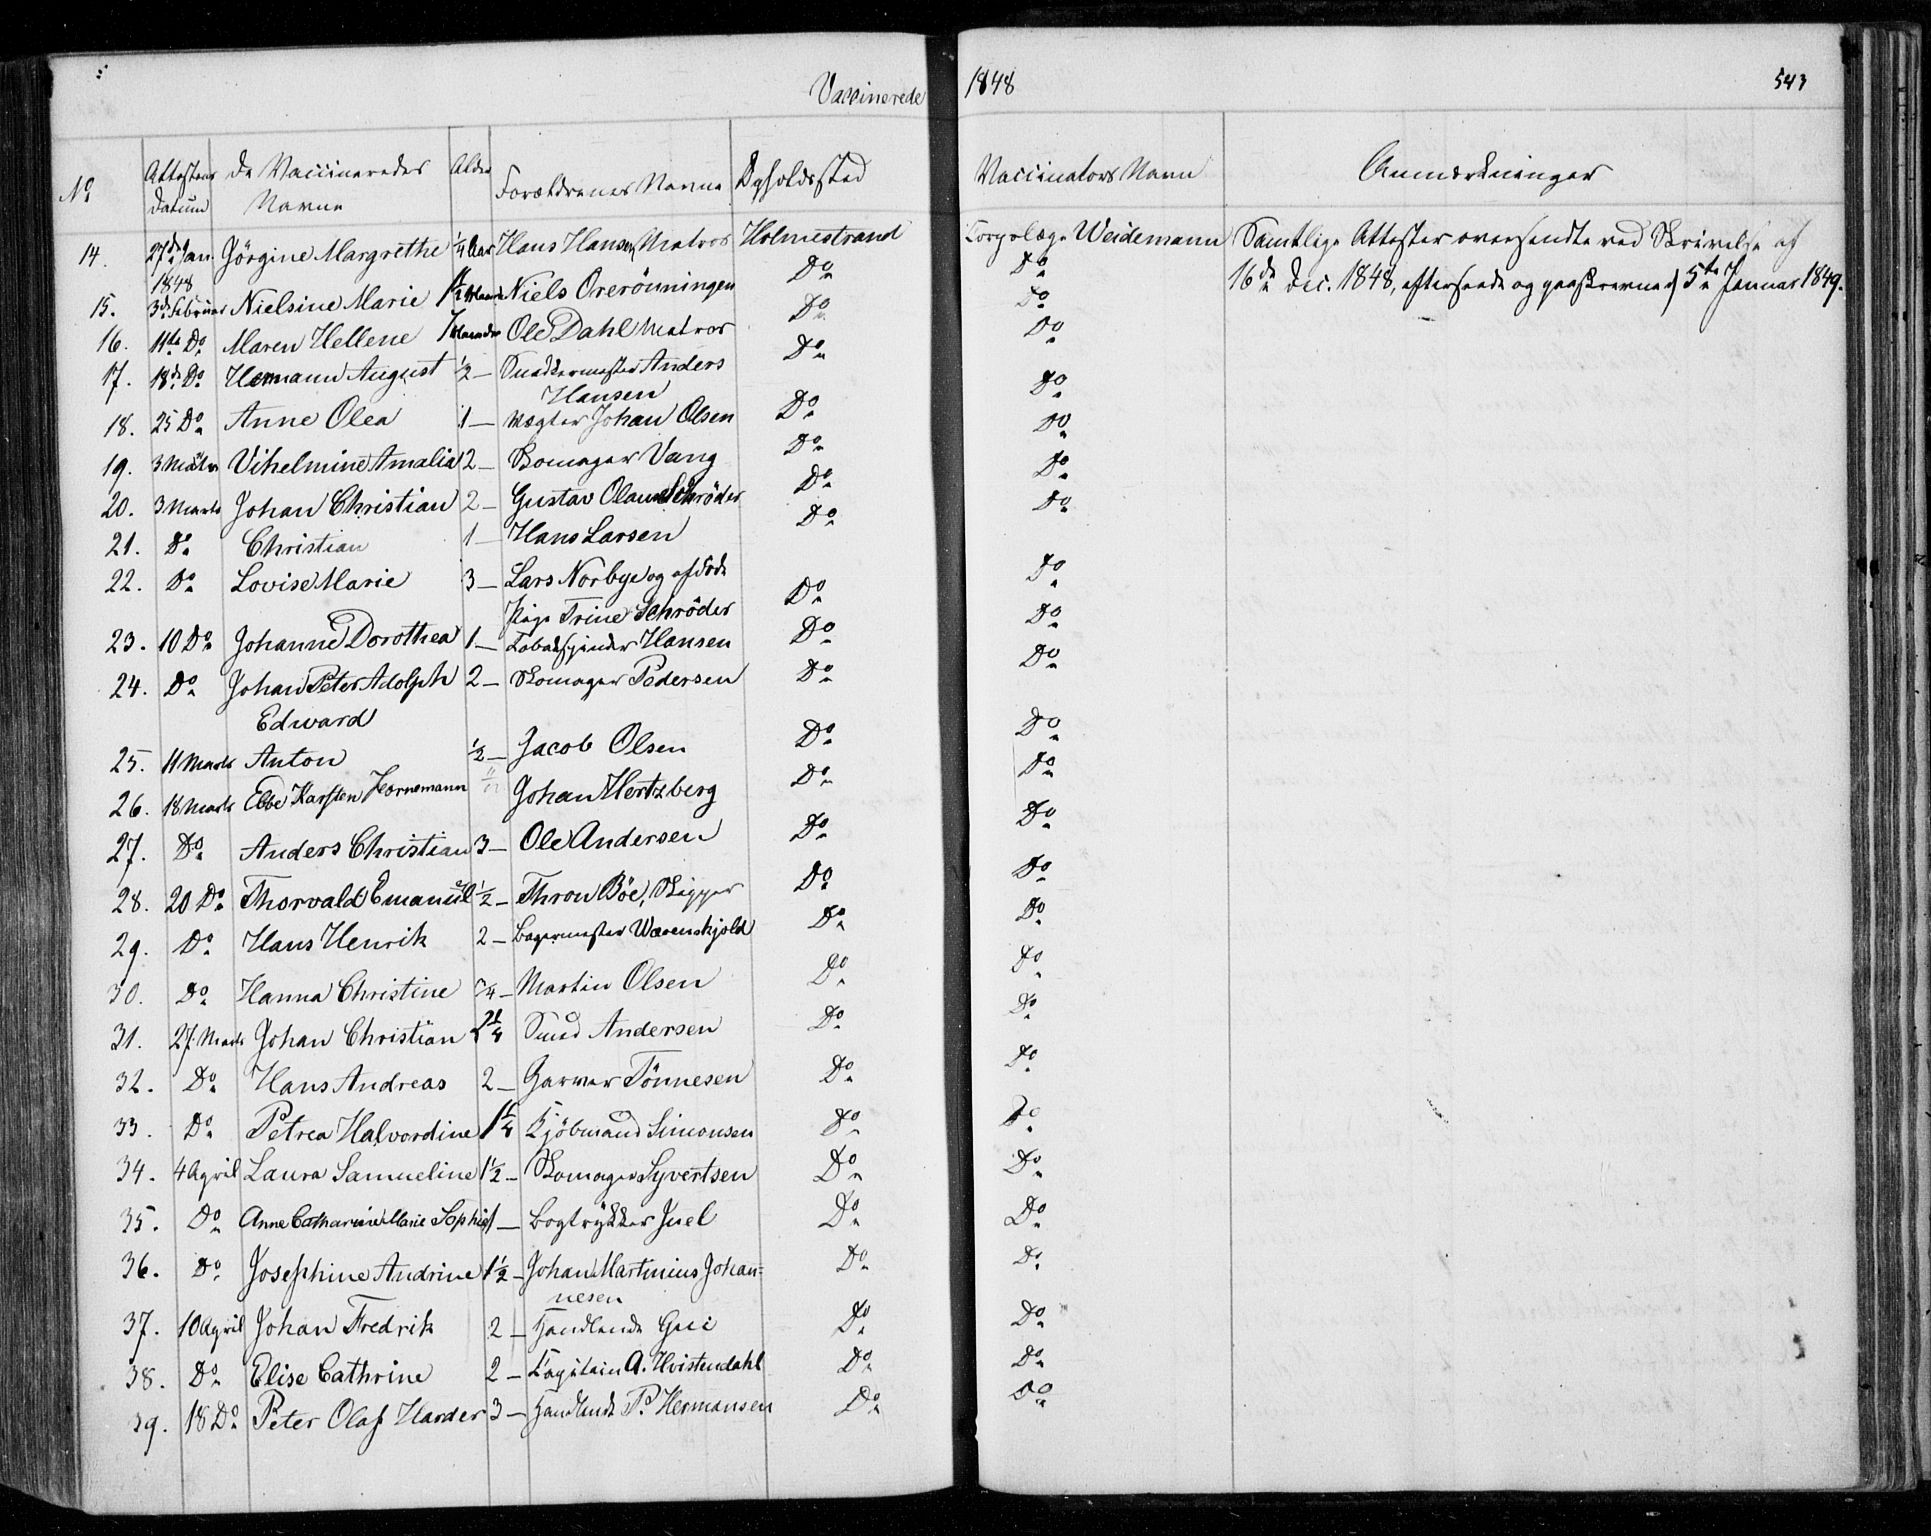 Vaccinerede 1848 543
No Attestens Datum De Vaccineredes Navne Alder Forældrenes Navne Opholdssted Vaccinators Navn Anmærkninger
14. 27de Jan. 1848 Jörgine Margrethe 1/4 Aar Hans Hansen, Matros Holmestrand Corpslæge Weidemann Samtlige Attester oversendte ved Skrivelse af
15. 3de Februar Nielsine Marie Niels Orerönningen Do Do 16de Dec. 1848, efterseede og paaskrevne 5te Januar 1849.
16. 11te Do Maren Hellene 7 Maaneder Ole Dahl Matros Do Do
17. 18de Do Hermann August 1/2 – Snedkermester Anders Do Do
Hansen
18. 25 Do Anne Olea 1 – Vægter Johan Olsen Do Do
19. 3 Marts Vihelmine Amalia 2 – Skomager Vang Do Do
20. 3 Marts Johan Christian 2 – Gustav Olaus Schröder Do Do
21. Do Christian 1 – Hans Larsen Do Do
22. Do Lovise Marie 3 – Lars Norbye og afdöde
Pige Trine Schröder Do Do
23. 10 Do Johanne Dorothea 1 – Tobaksspinder Hansen Do Do
24. Do Johan Peter Adolph 2 – Skomager Pedersen Do Do
Edward
25. 11 Marts Anton 1/2 – Jacob Olsen Do Do
26. 18 Marts Ebbe Karsten Hornemann Johan Hertzberg Do Do
27. Do Anders Christian 3 – Ole Andersen Do Do
28. 20 Do Thorvald Emanuel 1/2 – Thron Böe, Skipper Do Do
29. Do Hans Henrik 2 – Bagermester Wærenskjold Do Do
30. Do Hanna Christine 3/4 – Martin Olsen Do Do
31. 27. Marts Johan Christian 2 1/4 Smed Andersen Do Do
32. Do Hans Andreas 2 – Garver Tönnesen Do Do
33. Do Petrea Halvordine 1 1/4 Kjöbmand Simonsen Do Do
34. 4 April Laura Samueline 1 1/2 – Skomager Syvertsen Do Do
35. Do Anne Catharine Marie Sophie 1 – Bogtrykker Juel Do Do
36. Do Josephine Andrine 1 1/2 – Johan Martinius Johan= Do Do
nesen
37. 10 April Johan Fredrik 2 – Handlende Do Do
38. Do Elise Cathrine 2 – Capitain A. Hvistendahl Do Do
39. 18 Do Peter Olaf Harder 3 – Handlende P. Hermansen Do Do